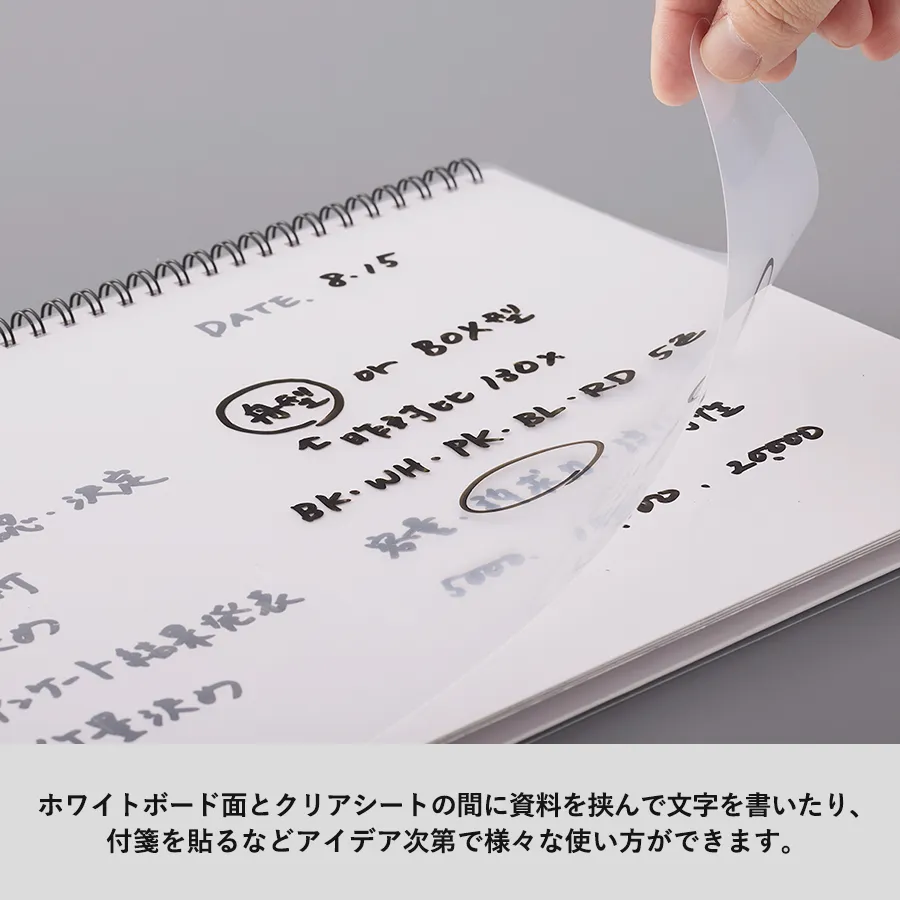 DATE. 8.15
舟型 or BOX型
一昨対比 130%
BK・WH・PK・BL・RD 5色
・決定
容量・
ンケート結果発表
決め
ホワイトボード面とクリアシートの間に資料を挟んで文字を書いたり、
付箋を貼るなどアイデア次第で様々な使い方ができます。